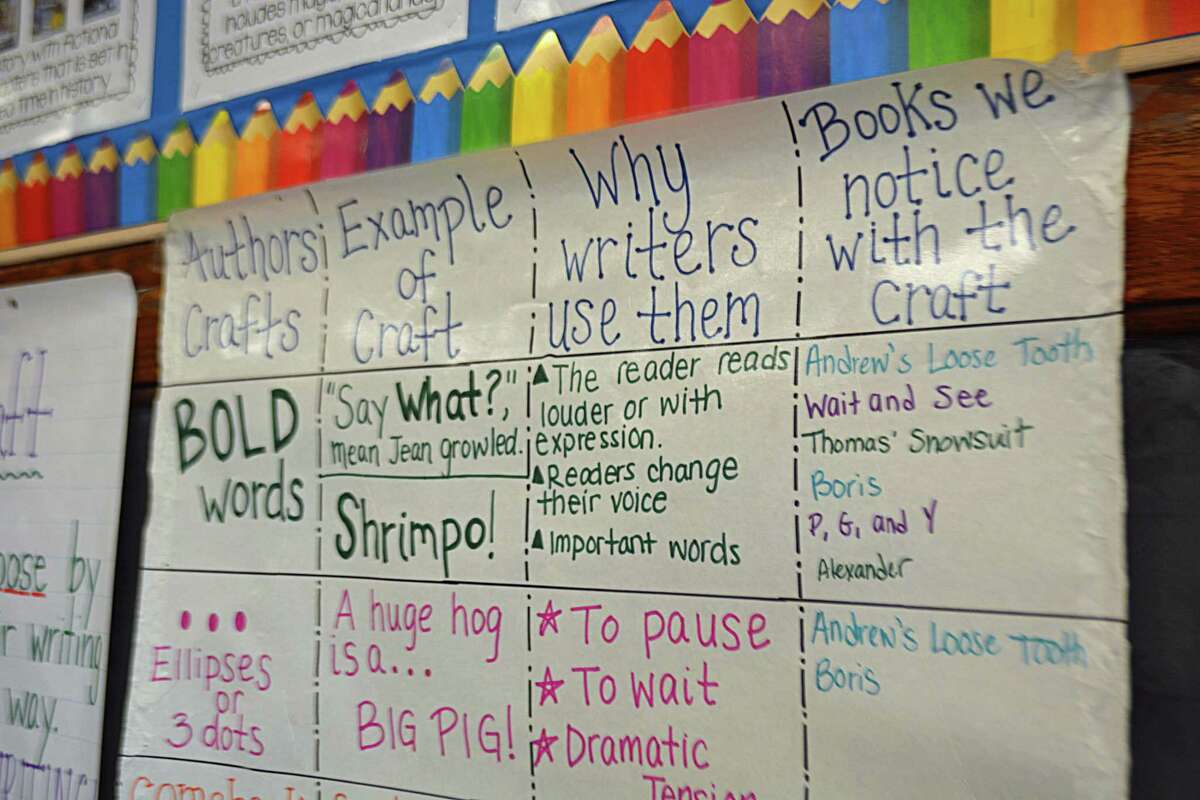 includes
creatures, or magical
time in history
Authors Crafts
Example of Craft
Why writers use them
Books we notice with the craft
BOLD words
"Say What?",
mean Jean growled.
Shrimpo!
▲The reader reads
louder or with
expression.
▲Readers change
their voice
▲Important words
Andrew's Loose Tooth
Wait and See
Thomas' Snowsuit
Boris
P, G, and Y
Alexander
...
Ellipses
or
3 dots
A huge hog
is a...
BIG PIG!
☆ To pause
☆ To wait
☆ Dramatic
Tension
Andrew's Loose Tooth
Boris
by
writing
way.